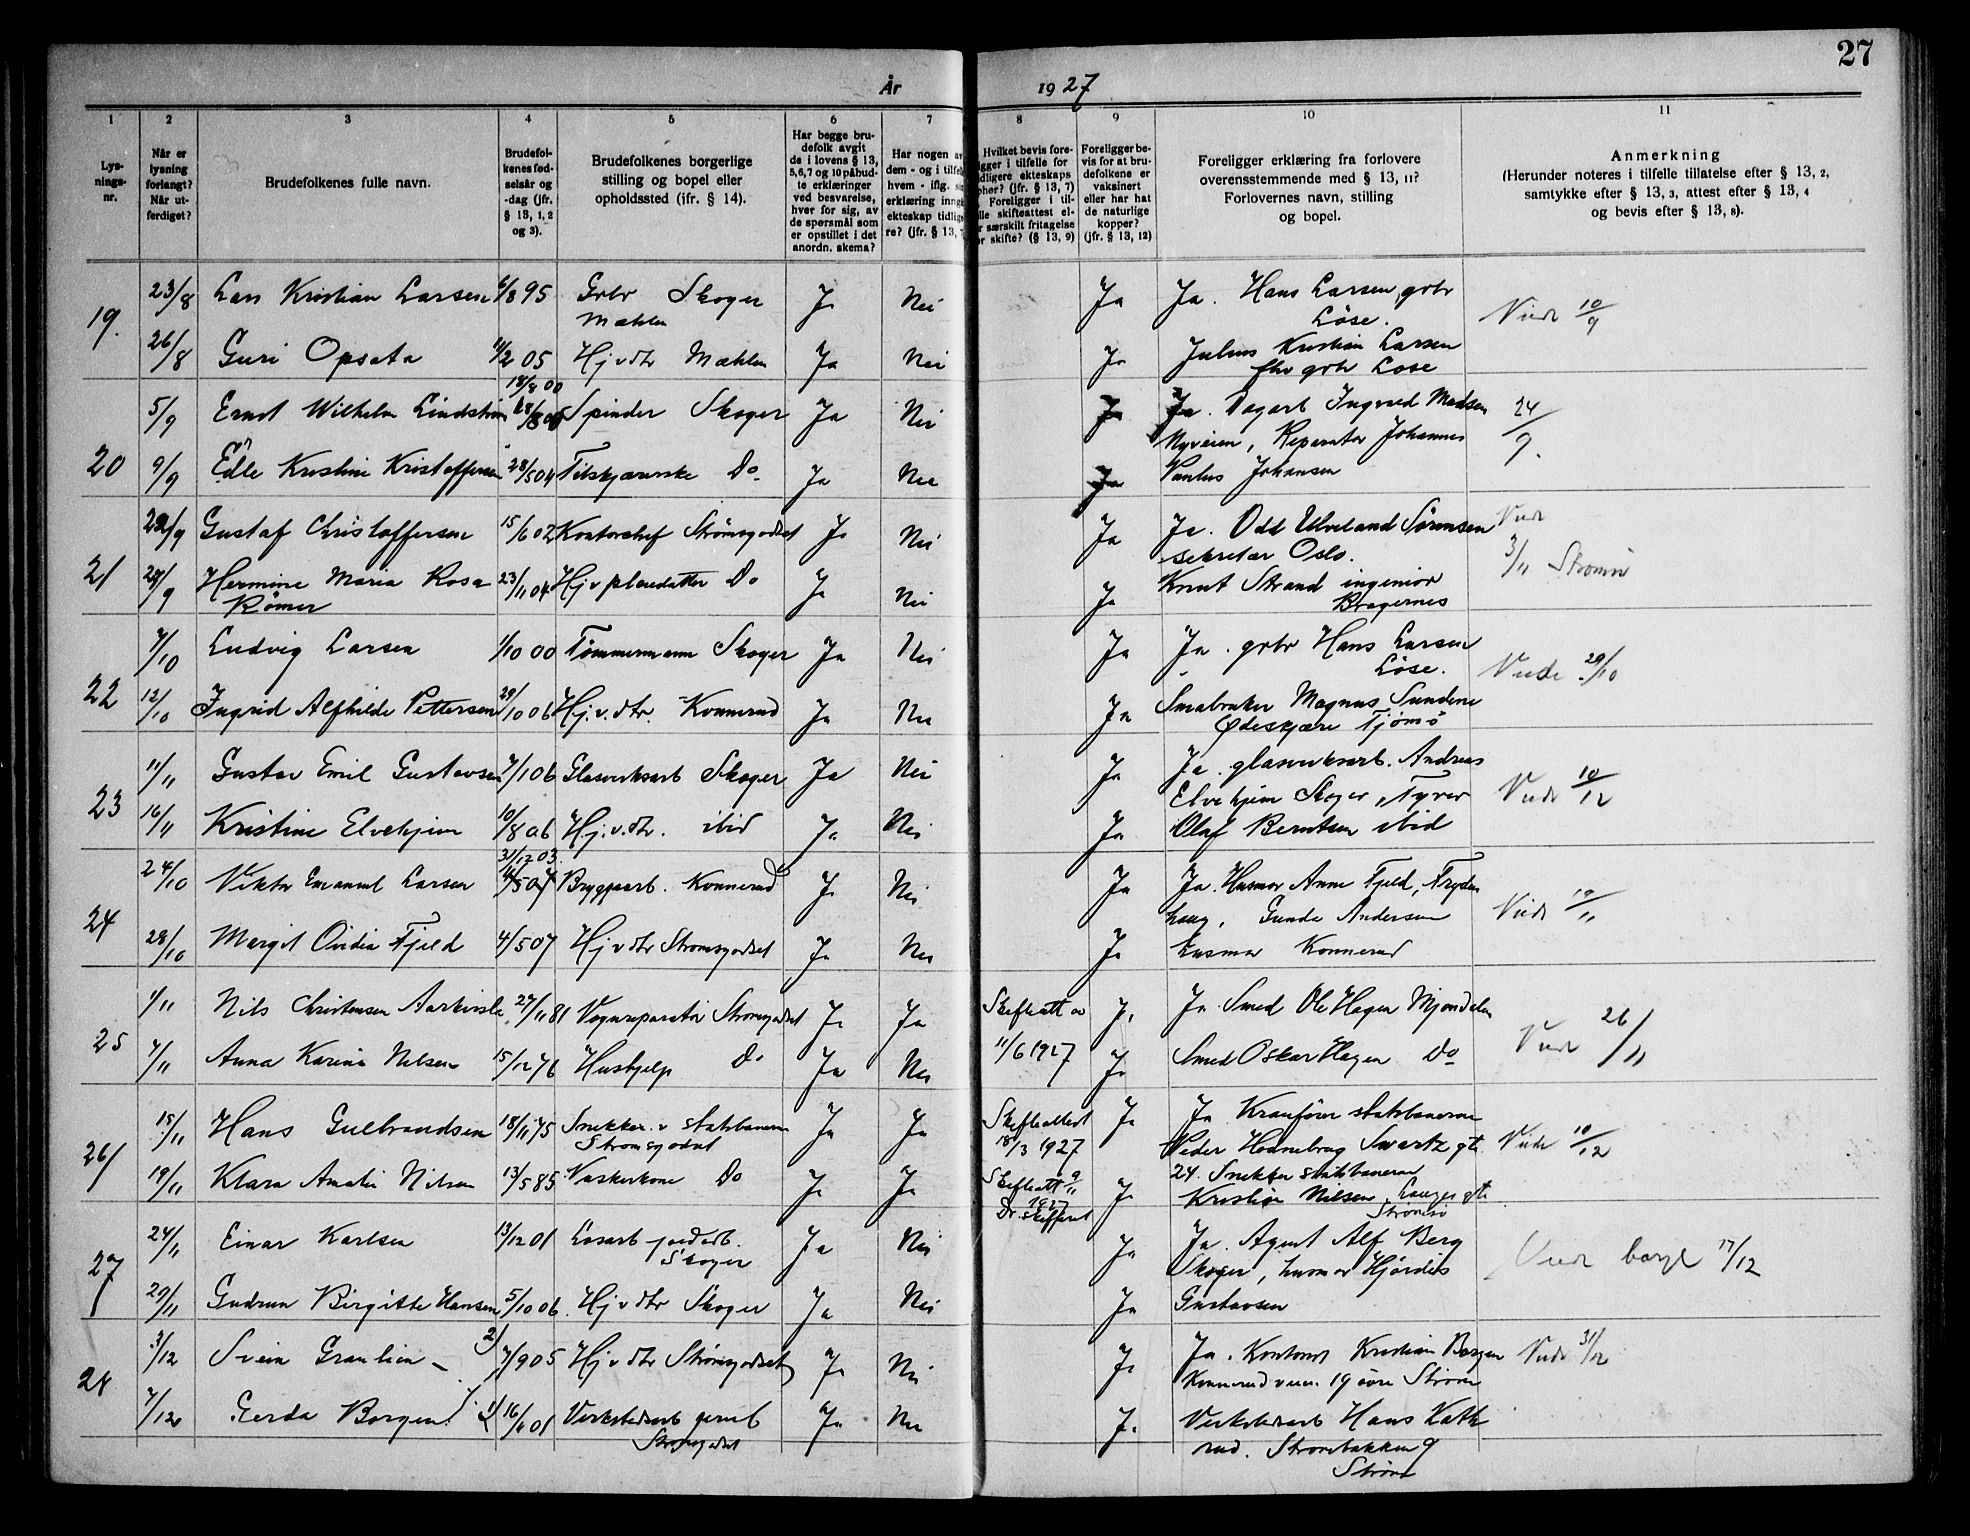 27
År 1927
1 2 3 4 5 6 7 8 9 10 11
Lys-
nings-
nr.
Når er
lysning
forlangt?
Når ut-
ferdiget?
Brudefolkenes fulle navn.
Brudefol-
kenes fød-
selsår og
-dag (jfr.
§ 13, 1, 2
og 3).
Brudefolkenes borgerlige
stilling og bopel eller
opholdssted (jfr. § 14).
Har begge bru-
defolk avgit
de i lovens § 13,
5,6,7 og 10 påbud-
te erklæringer
ved besvarelse,
hver for sig, av
de spørsmål som
er opstillet i det
anordn. skema?
Har nogen av
dem - og i tilfelle
hvem - iflg.
erklæring inng
ekteskap tidlige
re? (jfr. § 13, 7
Hvilket bevis fore-
ligger i tilfelle for
tidligere ekteskaps
ophør? (jfr. § 13, 7)
Foreligger i til-
lle skifteattest el-
r særskilt fritagelse
r skifte? (§ 13, 9)
Foreligger be-
vis for at bru-
defolkene er
vaksinert
eller har hat
de naturlige
kopper?
(jfr. § 13, 12)
Foreligger erklæring fra forlovere
overensstemmende med § 13, 11?
Forlovernes navn, stilling
og bopel.
Anmerkning
(Herunder noteres i tilfelle tillatelse efter § 13, 2,
samtykke efter § 13, 3, attest efter § 13, 4
og bevis efter § 13, 8).
19. 23/8 Lars Kristian Larsen 6/8 95 Grbr Skoger Ja Nei Ja Ja. Hans Larsen, grbr
Mæhlen Löse. Viede 10/9
26/8 Guri Opsata 11/2 05 Hj v dtr Mæhlen Ja Nei Ja Julius Kristian Larsen
fhv grbr Löse
18/8 00
5/9 Ernst Wilhelm Lindström Spinder Skoger Ja Nei Ja Ja. Dagarb Ingvald Madsen 24/9.
Nyveien, Reparatør Johannes
20 9/9 Edle Kristine Kristoffersen 28/5 04 Tilskjærerske Do Ja Nei Ja Paulus Johansen
21 22/9 Gustaf Christoffersen 15/6 02 Kontorchef Strømsgodset Ja Nei Ja Ja. Odd Ulveland Sørensen Vied
sekretær Oslo. 3/11 Strømsø
29/9 Hermine Maria Rosa 23/11 04 Hj v pleiedatter Do Ja Nei Ja Knut Strand ingeniør
Rømer Bragernes
22 7/10 Ludvig Larsen 1/10 00 Tømmermann Skoger Ja Nei Ja Ja. grbr Hans Larsen
Löse. Viede 29/10
12/10 Ingrid Alfhilde Pettersen 29/10 06 Hj.v.dtr. Konnerud Ja Nei Ja Smabruker Magnus Sundene
Ødeskjære Tjømö
23 11/11 Gustav Emil Gustavsen 7/1 06 Glasverksarb Skoger Ja Nei Ja Ja. glasverksarb. Andreas
Elvehjem Skoger, Fyrer Viede 10/12
16/11 Kristine Elvehjem 10/8 06 Hj.v.dtr. ibid Ja Nei Ja Olaf Berntsen ibid
31/12 03.
24 24/10 Viktor Emanuel Larsen Bryggearb. Konnerud Ja Nei Ja Ja. Husmor Anne Fjeld, Fryden
haug, Gunda Andersen Viede 19/11
28/10 Margit Ovidia Fjeld 4/5 07 Hj v dtr Strømsgodset Ja Nei Ja husmor Konnerud
25 1/11 Nils Christensen 27/11 81 Vognreparatør Strømsgodset Ja Ja Skifteatt av Ja Ja. Smed Ole Hagen Mjøndalen
7/11 Anna Karine Nilsen 15/12 76 Hushjelp Do Ja Nei 11/6 1927 Ja Smed Oskar Hagen Do Viede 26/11
26 15/11 Hans Gulbrandsen 18/11 75 Snekker v statsbanerne Ja Ja Skifteattest Ja Ja Kranfører statsbanerne
Strømsgodset 18/3 1927 Peder Hennebrug Swartz gt. Viede 10/12
19/11 Klara Amalie Nilsen 13/5 85 Vaskerkone Do Ja Ja Skifteatt 9/11 Ja 24. Snekker statsbanerne
1927 Kristian Nilsen, Langes gt.
Dr. skifteret Strømsø
27 24/11 Einar Karlsen 13/12 01 Løsarb jordarb. Ja Nei Ja Ja. Agent Alf Berg
Skoger Skoger, husmor Hjørdis Viede borgl 17/12
29/11 Gudrun Birgitte Hansen 5/10 06 Hj v dtr Skoger Ja Nei Ja Gustavsen
28 3/12 Svein Graulien 2) 7/9 05 Hj v dtr Strømsgodset Ja Nei Ja Ja. Kontorist Kristian Borgen Viede 31/12
Konnerudveien 19 øvre Strømsø
7/12 Gerda Borgen 1) 16/1 01 Verkstedsarb Ja Nei Ja. Verkstedsarb Hans Kath
Strømsgodset rud. Strømsbakken 9
Strømsø